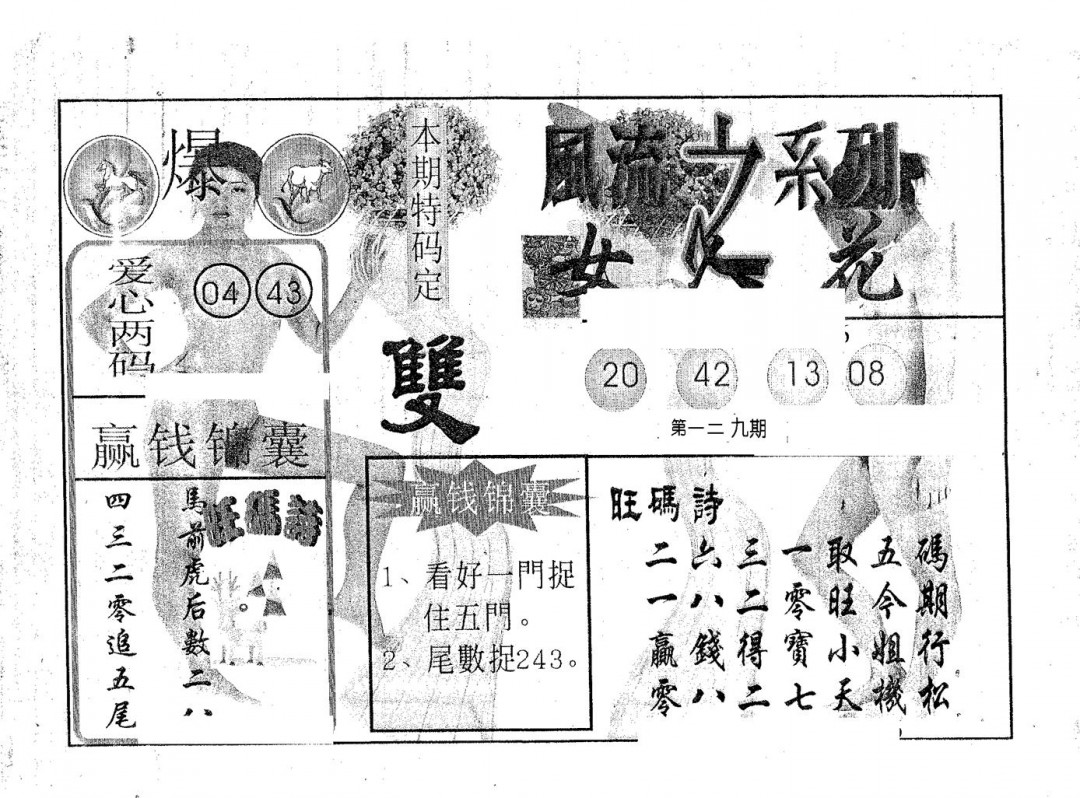 爆
爱心两码
04 43
赢钱锦囊
旺碼詩
馬前虎后數二八
四三二零追五尾
本期特码定
雙
風流之系列
女人花
20 42 13 08
第一二九期
赢钱锦囊
1、看好一門捉
住五門。
2、尾數捉243。
旺碼詩
碼期行松
五今姐機
取旺小天
一零寶七
三二得二
六八錢八
二一贏零